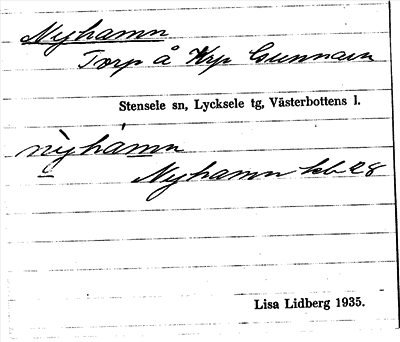 Nyhamn
Torp å Krp Gunnarn
Stensele sn, Lycksele tg, Västerbottens l.
nỳhámn
Nyhamn hb 28
Lisa Lidberg 1935.